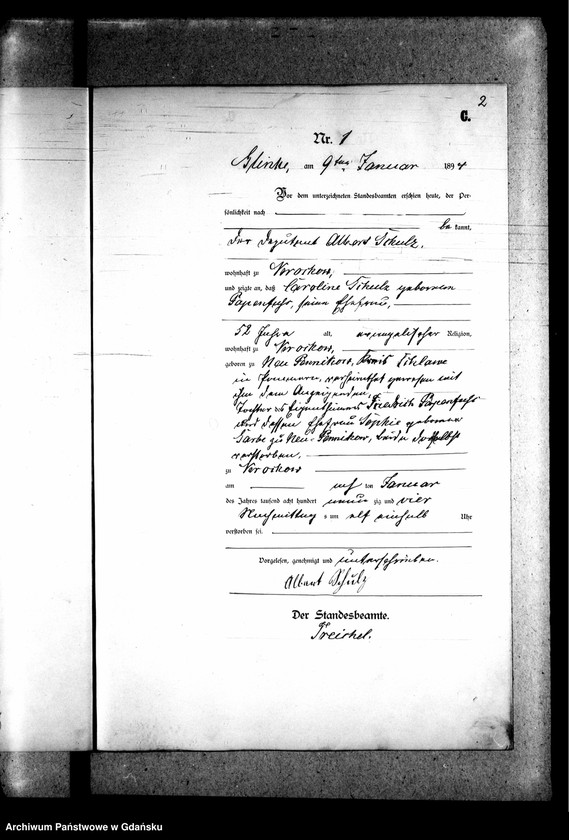 2
C.
Nr. 1
Glinke, am 9ten Januar 1894
Vor dem unterzeichneten Standesbeamten erschien heute, der Per-
sönlichkeit nach
be kannt,
der Deputant Albert Schulz,
wohnhaft zu Woroschow,
und zeigte an, daß Caroline Schulz geborenen
Papenfuhs, seine Ehefrau,
52 Jahre alt, evangelischer Religion,
wohnhaft zu
geboren zu Neu Pennikow, Kreis Schlawe
in Pommern, verheirathet gewesen mit
ihm dem Anzeigenden,
Tochter des Eigenthümers Friedrich Papenfuhs
und dessen Ehefrau Sophie geborenen
zu Neu-Pennikow, beide daselbst
verstorben.
zu
am ten Januar
des Jahres tausend acht hundert neun zig und vier
Nachmittags um elf einhalb Uhr
verstorben sei.
Vorgelesen, genehmigt und unterschrieben.
Albert Schulz
Der Standesbeamte.
Treichel.
Archiwum Państwowe w Gdańsku